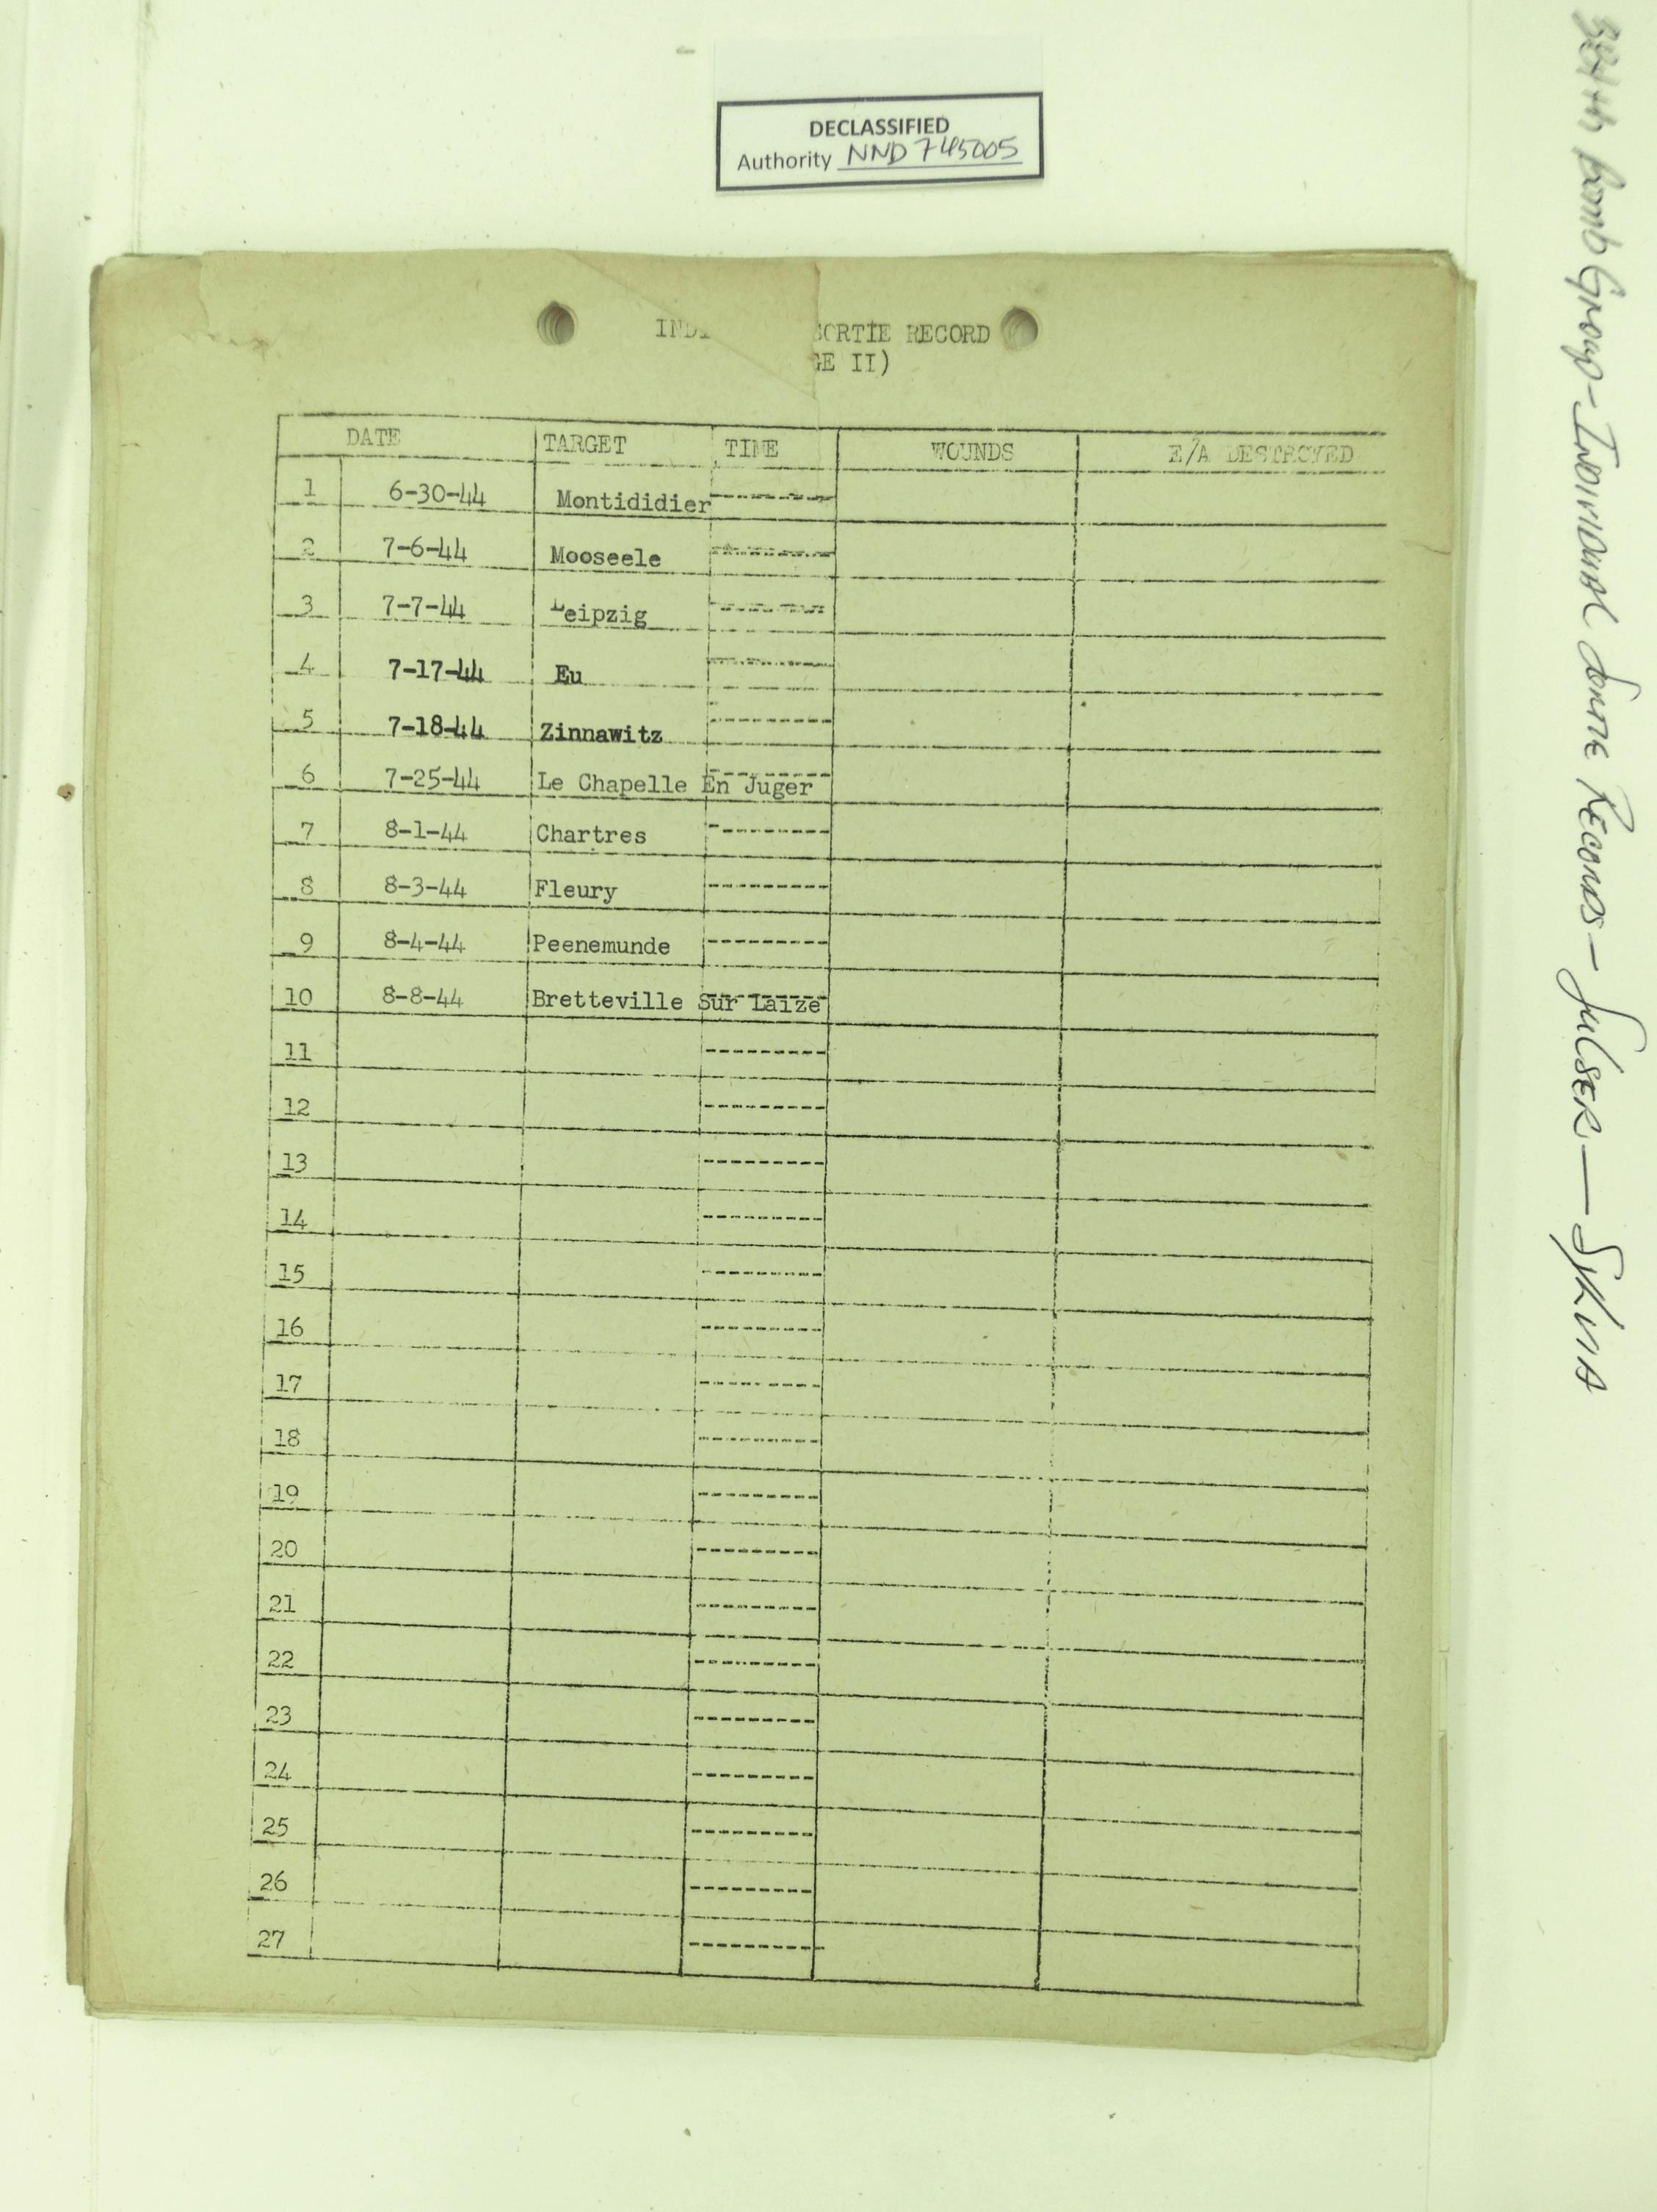 DECLASSIFIED
Authority NND 745005
SORTIE RECORD
II)
DATE TARGET TIME WOUNDS E/A DESTROYED
1 6-30-44 Montididier ---------
2 7-6-44 Mooseele ---------
3 7-7-44 Leipzig ---------
4 7-17-44 Eu ---------
5 7-18-44 Zinnawitz ---------
6 7-25-44 Le Chapelle En Juger ---------
7 8-1-44 Chartres ---------
8 8-3-44 Fleury ---------
9 8-4-44 Peenemunde ---------
10 8-8-44 Bretteville Sur Laize ---------
11 ---------
12 ---------
13 ---------
14 ---------
15 ---------
16 ---------
17 ---------
18 ---------
19 ---------
20 ---------
21 ---------
22 ---------
23 ---------
24 ---------
25 ---------
26 ---------
27 ---------
384th Bomb Group - Individual Sortie Records - Sulser — Sylvia